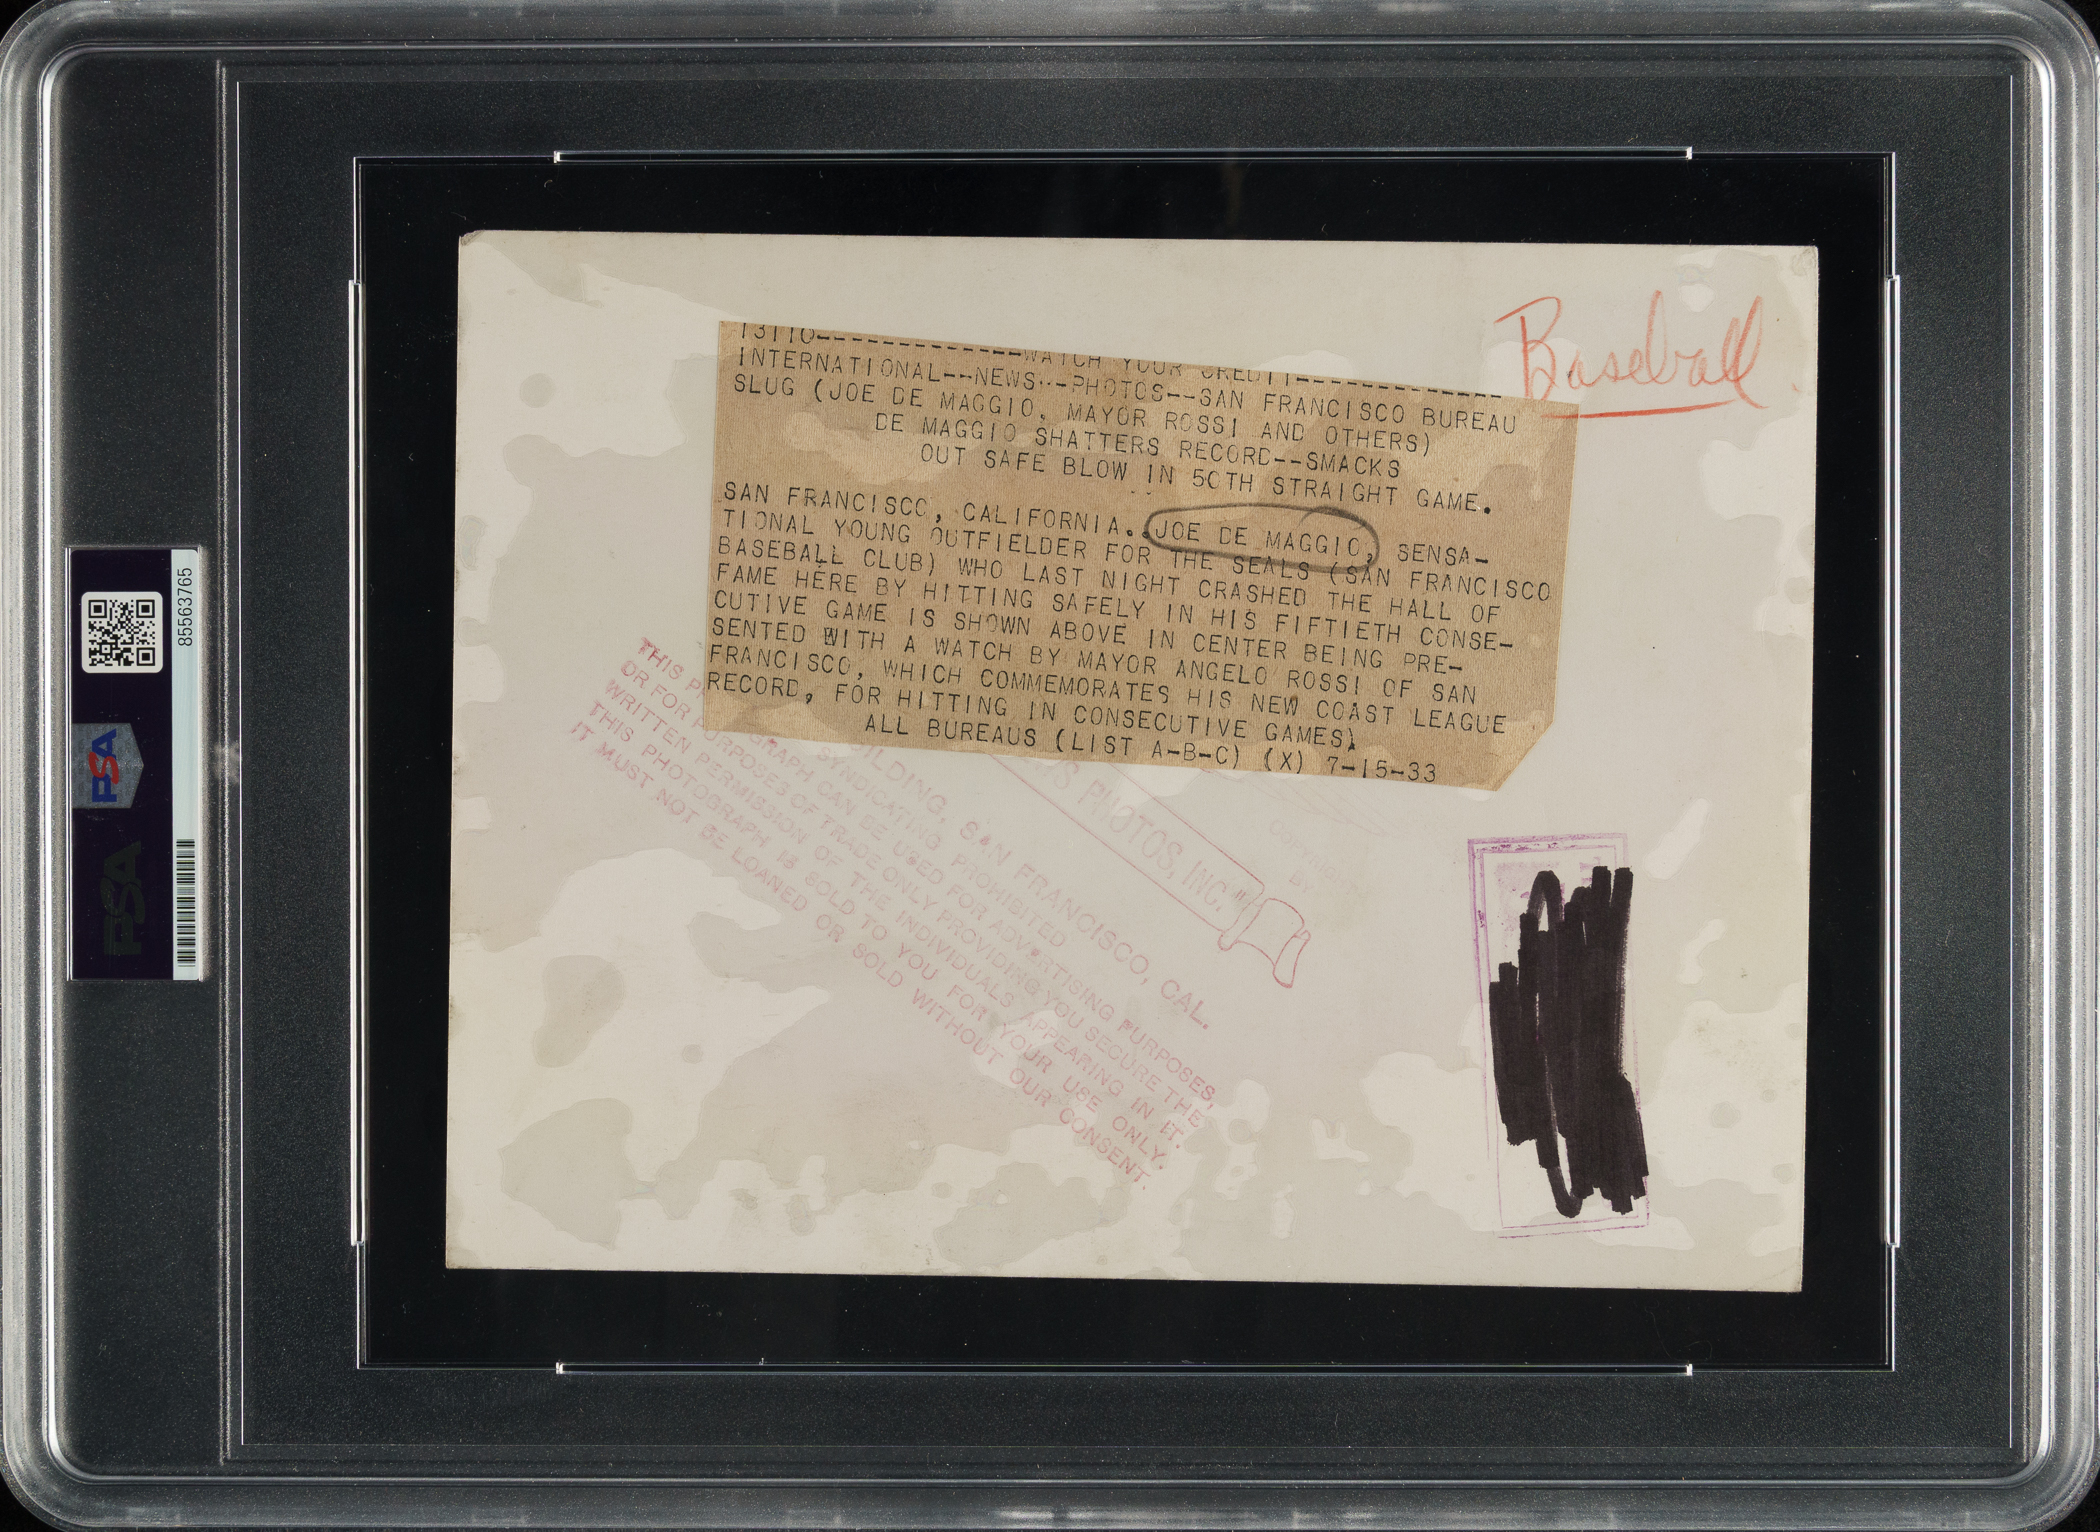 13110--------------WATCH YOUR CREDIT--------------
INTERNATIONAL--NEWS--PHOTOS--SAN FRANCISCO BUREAU
SLUG (JOE DE MAGGIO, MAYOR ROSSI AND OTHERS)
DE MAGGIO SHATTERS RECORD--SMACKS
OUT SAFE BLOW IN 50TH STRAIGHT GAME.
SAN FRANCISCO, CALIFORNIA..JOE DE MAGGIO, SENSA-
TIONAL YOUNG OUTFIELDER FOR THE SEALS (SAN FRANCISCO
BASEBALL CLUB) WHO LAST NIGHT CRASHED THE HALL OF
FAME HERE BY HITTING SAFELY IN HIS FIFTIETH CONSE-
CUTIVE GAME IS SHOWN ABOVE IN CENTER BEING PRE-
SENTED WITH A WATCH BY MAYOR ANGELO ROSSI OF SAN
FRANCISCO, WHICH COMMEMORATES HIS NEW COAST LEAGUE
RECORD, FOR HITTING IN CONSECUTIVE GAMES)
ALL BUREAUS (LIST A-B-C) (X) 7-15-33
Baseball
COPYRIGHT
BY
PHOTOS, INC.
SAN FRANCISCO, CAL.
SYNDICATING PROHIBITED
THIS CAN BE USED FOR ADVERTISING PURPOSES,
OR FOR PURPOSES OF TRADE ONLY PROVIDING YOU SECURE THE
WRITTEN PERMISSION OF THE INDIVIDUALS APPEARING IN IT.
THIS PHOTOGRAPH IS SOLD TO YOU FOR YOUR USE ONLY.
IT MUST NOT BE LOANED OR SOLD WITHOUT OUR CONSENT.
85563765
PSA
PSA